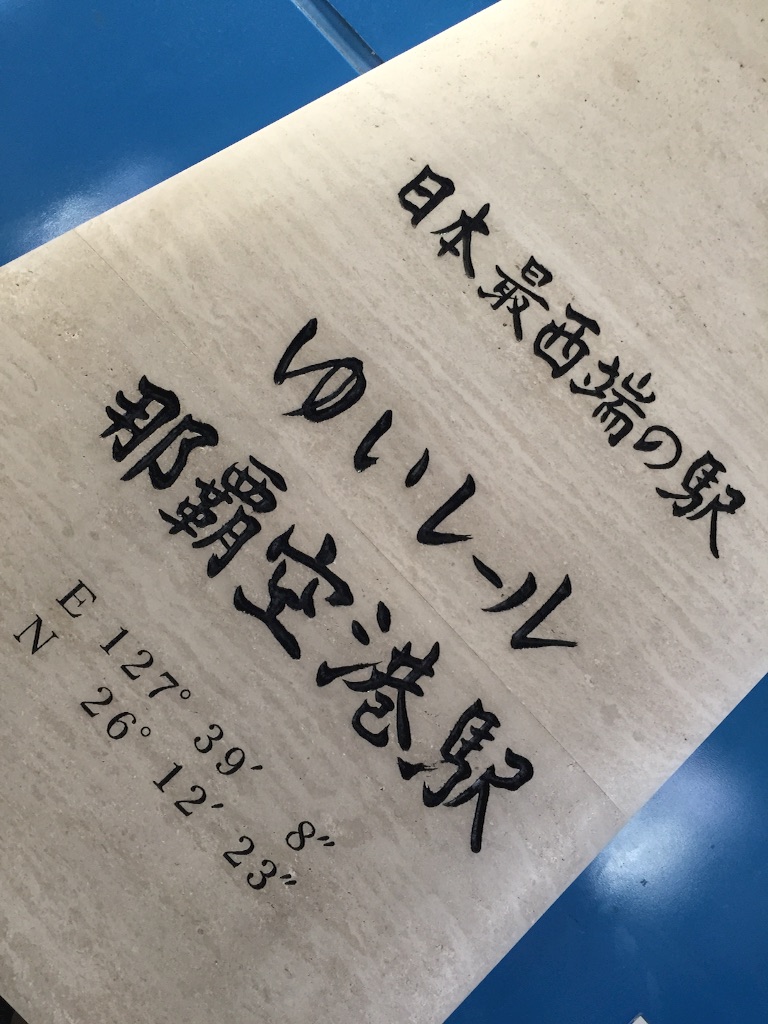 日本最西端の駅
ゆいレール
那覇空港駅
E 127° 39′ 8″
N 26° 12′ 23″